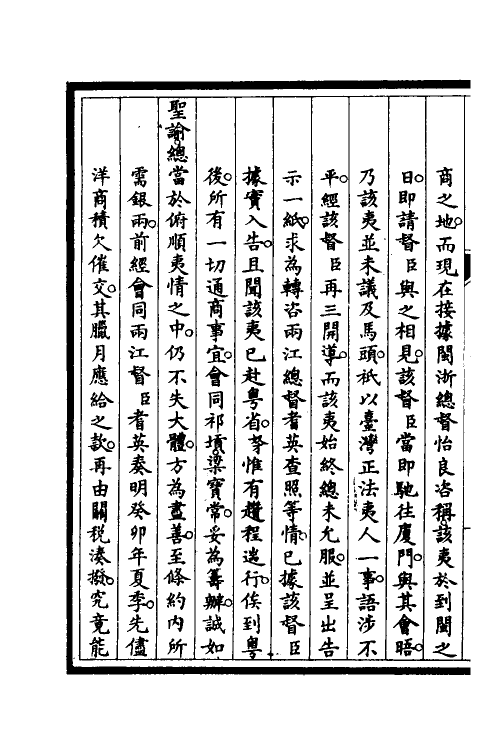 商之地。而現在接據閩浙總督怡良咨稱。該夷於到閩之
日。即請督臣與之相見。該督臣當即馳往廈門。與其會晤。
乃該夷並未議及馬頭。祇以臺灣正法夷人一事。語涉不
平。經該督臣再三開導。而該夷始終總未允服。並呈出告
示一紙。求為轉咨兩江總督耆英查照等情。已據該督臣
據實入告。且聞該夷已赴粵省。等惟有趲程遄行。俟到粵
後。所有一切通商事宜。會同祁𡎴。梁寶常。妥為籌辦。誠如
聖諭。總當於俯順夷情之中。仍不失大體。方為盡善。至條約內所
需銀兩。前經會同兩江督臣耆英奏明癸卯年夏季。先儘
洋商積欠催交。其臘月應給之款。再由關稅湊撥。究竟能